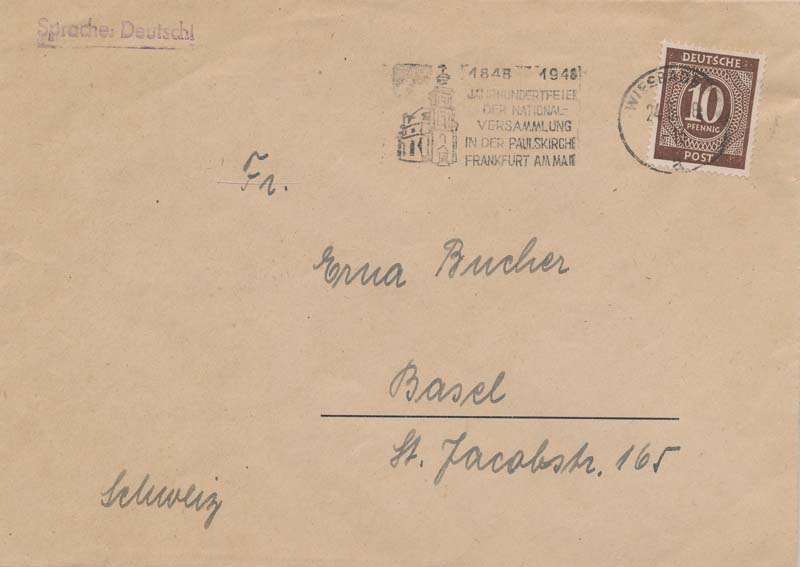 Sprache: Deutsch!
1848 1948
JAHRHUNDERTFEIER
DER NATIONAL-
VERSAMMLUNG
IN DER PAULSKIRCHE
FRANKFURT AM MAIN
DEUTSCHE
10
PFENNIG
POST
Fr.
Erna Bucher
Basel
St. Jacobstr. 165
Schweiz